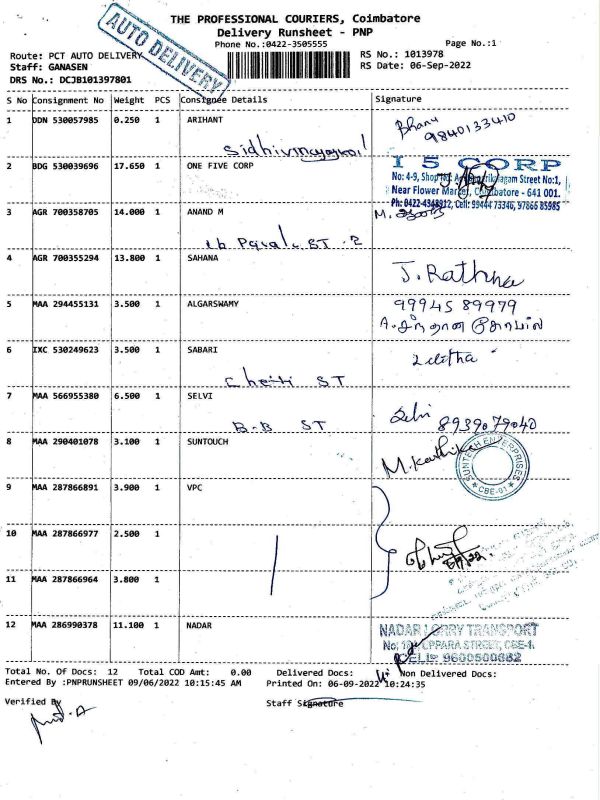 THE PROFESSIONAL COURIERS, Coimbatore
AUTO DELIVERY
Delivery Runsheet - PNP
Phone No.:0422-3505555
Page No.:1
Route: PCT AUTO DELIVERY
RS No.: 1013978
Staff: GANASEN
RS Date: 06-Sep-2022
DRS No.: DCJB101397801
S No Consignment No Weight PCS Consignee Details Signature
1 DDN 530057985 0.250 1 ARIHANT Bhanu
9840133410
2 BDG 530039696 17.650 1 ONE FIVE CORP I 5 CORP
Street No:1,
Near Flower Market, Coimbatore - 641 001.
Cell: 99444 73346, 97866 85985
3 AGR 700358705 14.000 1 ANAND M M.
4 AGR 700355294 13.800 1 SAHANA J. Rathna
5 MAA 294455131 3.500 1 ALGARSWAMY 99945 89979
6 IXC 530249623 3.500 1 SABARI Lalitha
ST
7 MAA 566955380 6.500 1 SELVI Selvi 8939079040
B.B ST
8 MAA 290401078 3.100 1 SUNTOUCH M. Karthika
SUNTECH ENTERPRISES
CBE-01
9 MAA 287866891 3.900 1 VPC
10 MAA 287866977 2.500 1
11 MAA 287866964 3.800 1
12 MAA 286990378 11.100 1 NADAR NADAR LORRY TRANSPORT
UPPARA STREET, CBE-1.
CELL: 9600500682
Total No. Of Docs: 12 Total COD Amt: 0.00 Delivered Docs: Non Delivered Docs:
Entered By :PNPRUNSHEET 09/06/2022 10:15:45 AM Printed On: 06-09-2022 10:24:35
Verified By Staff Signature